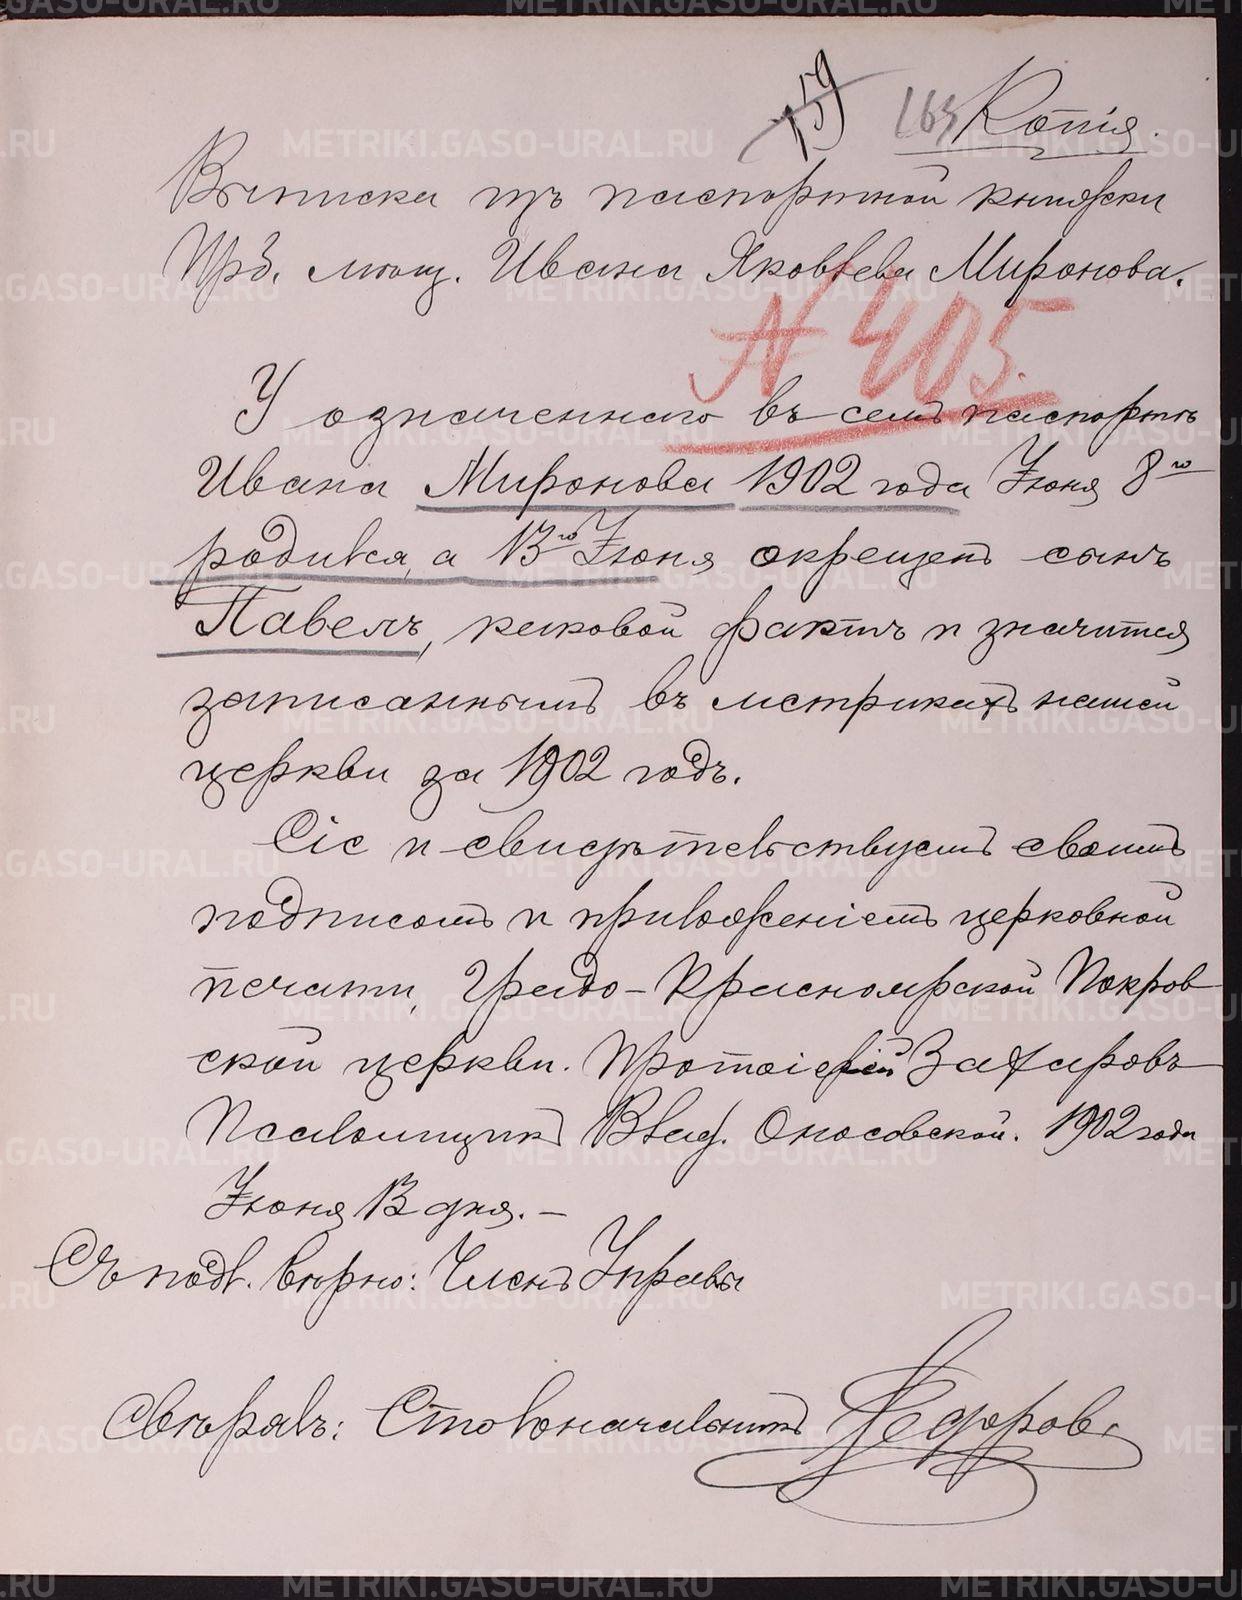 159 163 Копія.
Выписка изъ паспортной книжки
Ирб. мѣщ. Ивана Яковлева Мironова.
№ 405.
У означеннаго въ семъ паспортѣ
Ивана Миронова 1902 года Іюня 8го
родился, а 13го Іюня окрещенъ сынъ
Павелъ, каковой фактъ и значится
записаннымъ въ метрикахъ нашей
церкви за 1902 годъ.
Сіе и свидѣтельствуемъ своимъ
подписомъ и приложеніемъ церковной
печати, Градо-Красноярской Покров
ской церкви. Протоіерей Захаровъ
Псаломщикъ Влад. Оносовской. 1902 года
Іюня 13 дня. –
Съ подл. вѣрно: Членъ Управы
Свѣрялъ: Столоначальникъ Ѳедоров.
METRIKI.GASO-URAL.RU